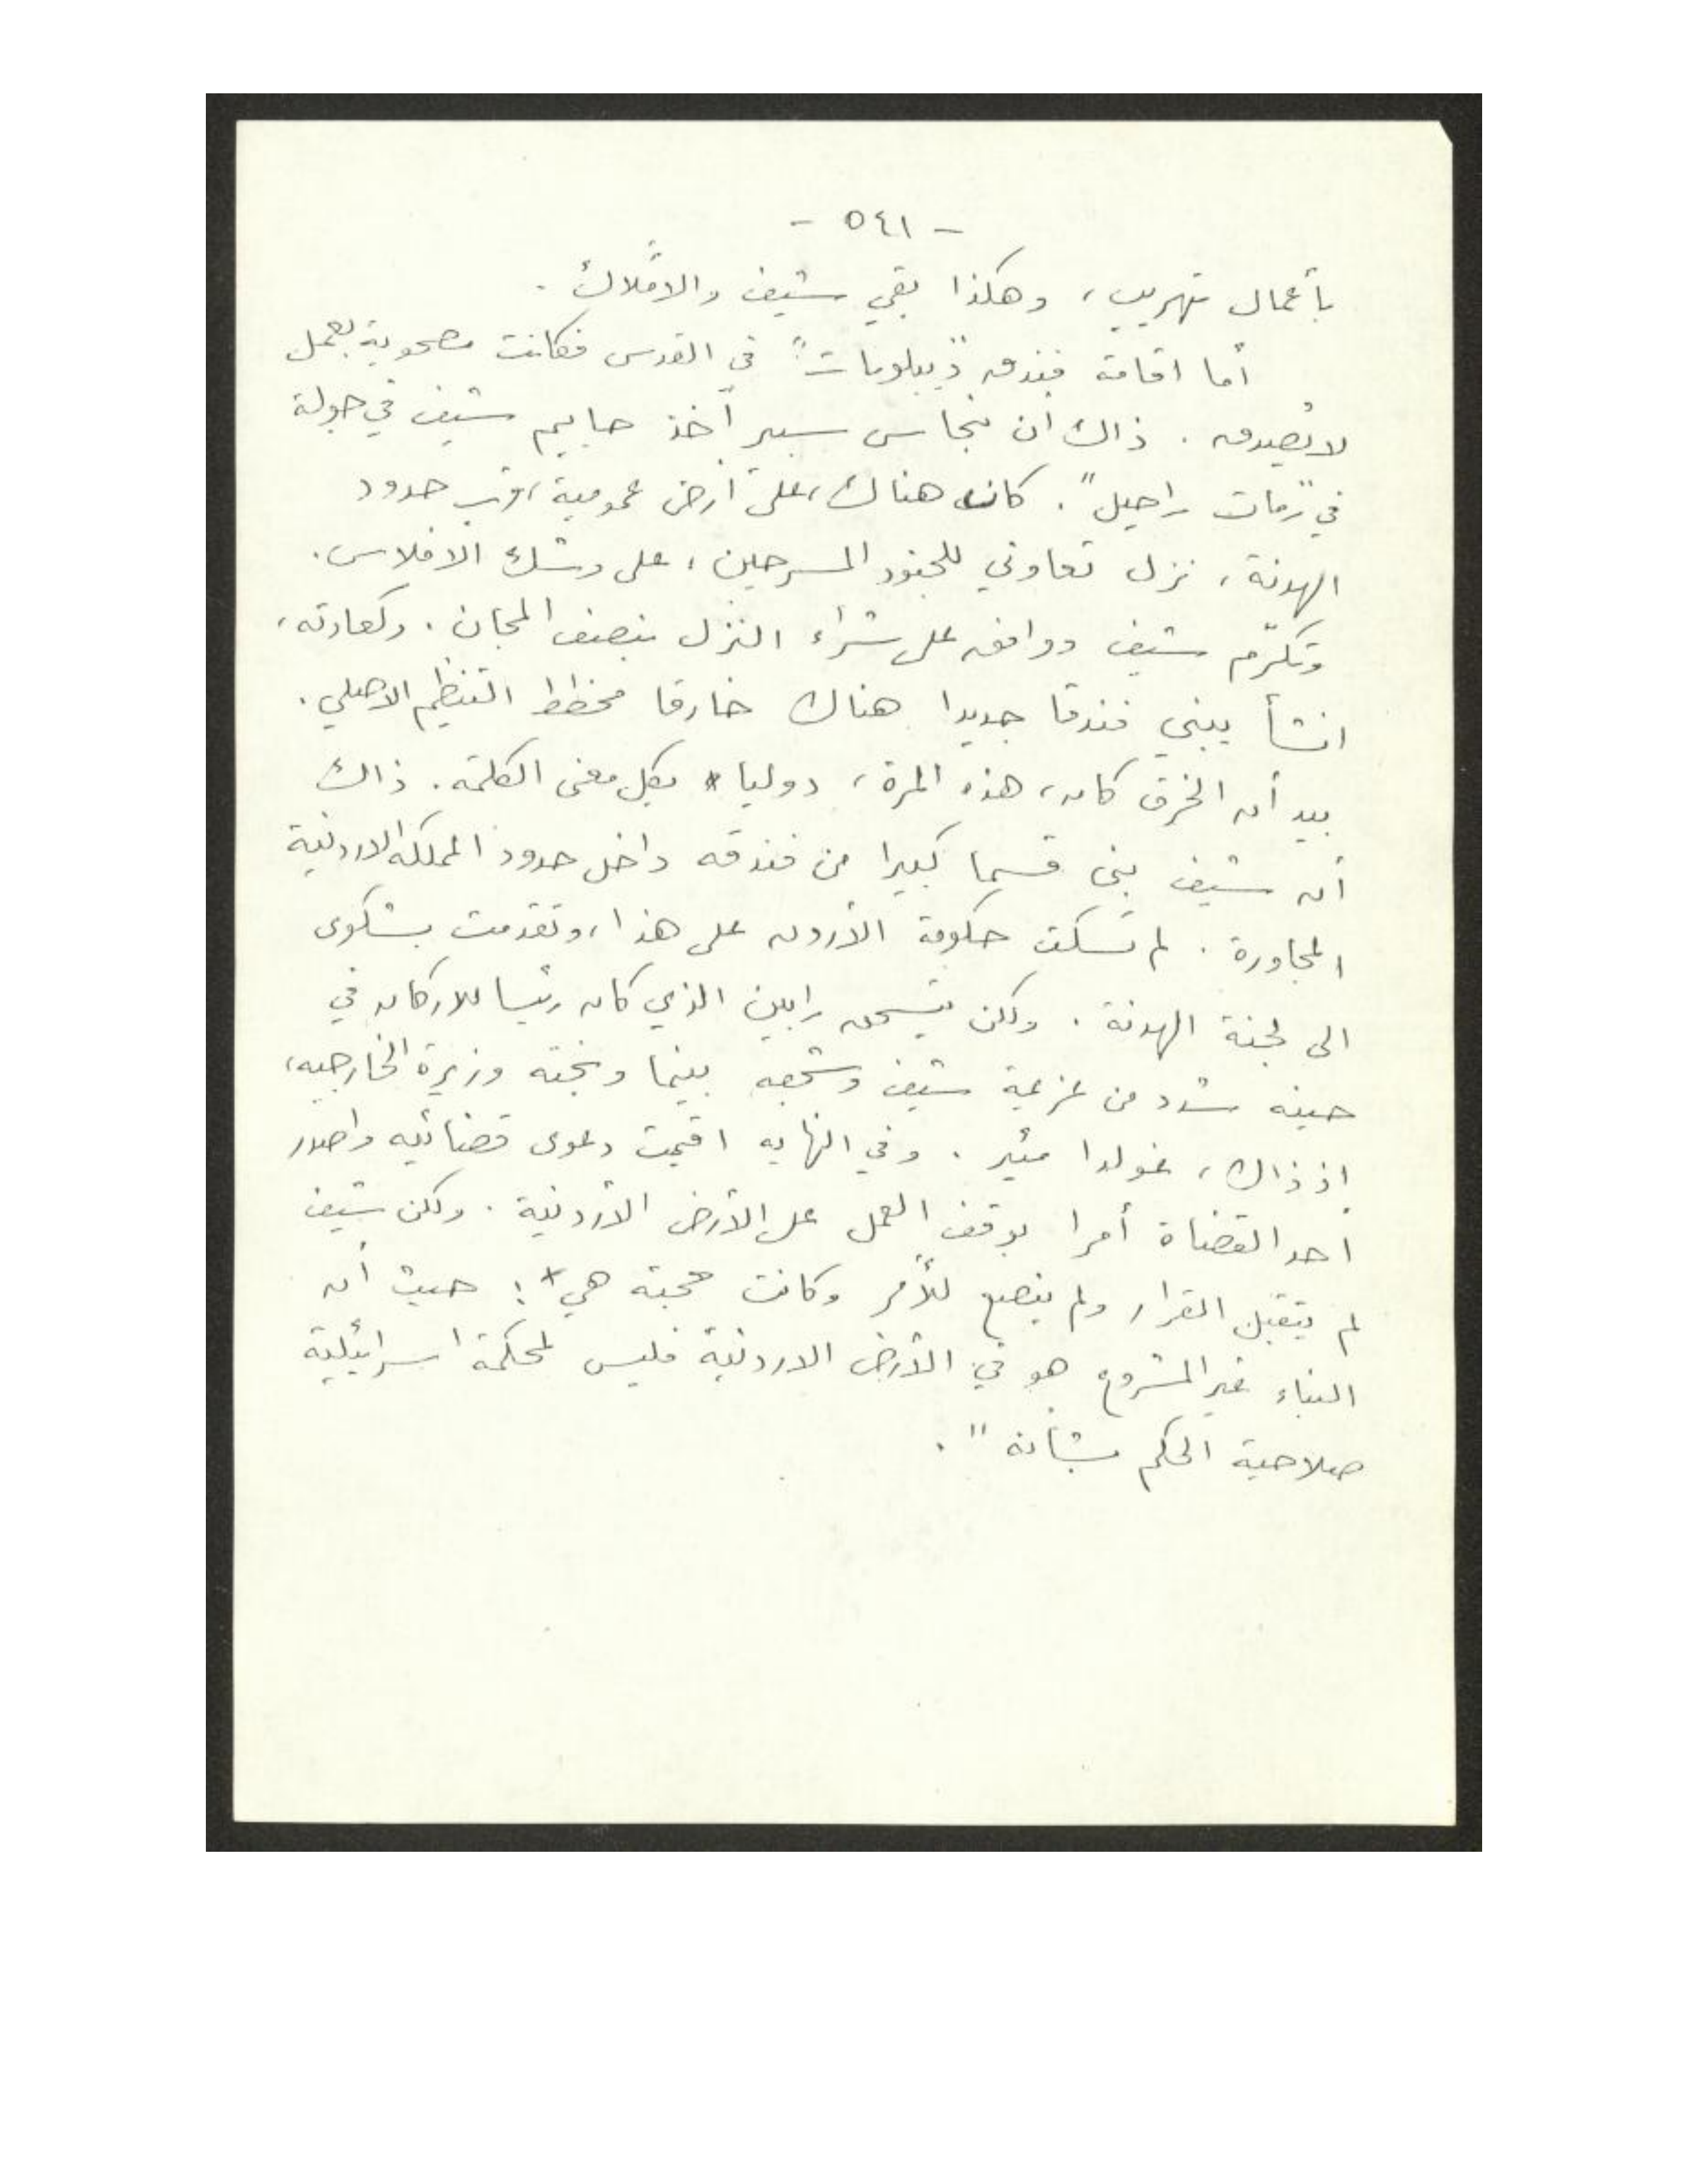 - ٥٤١ -
بأعمال تهريب، وهكذا بقي شيف والأملاك.
أما اقامة فندق "ديبلومات" في القدس فكانت مصحوبة بعمل
لا يُصدق. ذاك ان بنحاس سبير أخذ حاييم شيف في جولة
في "رمات راحيل". كان هناك، على أرض عمومية، قرب حدود
الهدنة، نزل تعاوني للجنود المسرحين، على وشك الافلاس.
وتكرّم شيف ووافق على شراء النزل بنصف المجان. وكعادته،
انشأ يبني فندقا جديدا هناك خارقا مخطط التنظيم الاصلي.
بيد أن الخرق كان، هذه المرة، دوليا بكل معنى الكلمة. ذاك
أن شيف بنى قسما كبيرا من فندقه داخل حدود المملكة الاردنية
المجاورة. لم تسكت حكومة الأردن على هذا، وتقدمت بشكوى
الى لجنة الهدنة. ولكن يتسحق رابين الذي كان رئيسا للاركان في
حينه شدد من عزيمة شيف وشجعه بينما وبخته وزيرة الخارجيه،
إذ ذاك، غولدا مئير. وفي النهايه اقيمت دعوى قضائيه واصدر
أحد القضاة أمرا بوقف العمل على الأرض الأردنية. ولكن شيف
لم يتقبل القرار ولم ينصع للأمر وكانت حجته هي*: حيث أن
البناء غير المشروع هو في الأرض الاردنية فليس لمحكمة اسرائيلية
صلاحية الحكم بشأنه".